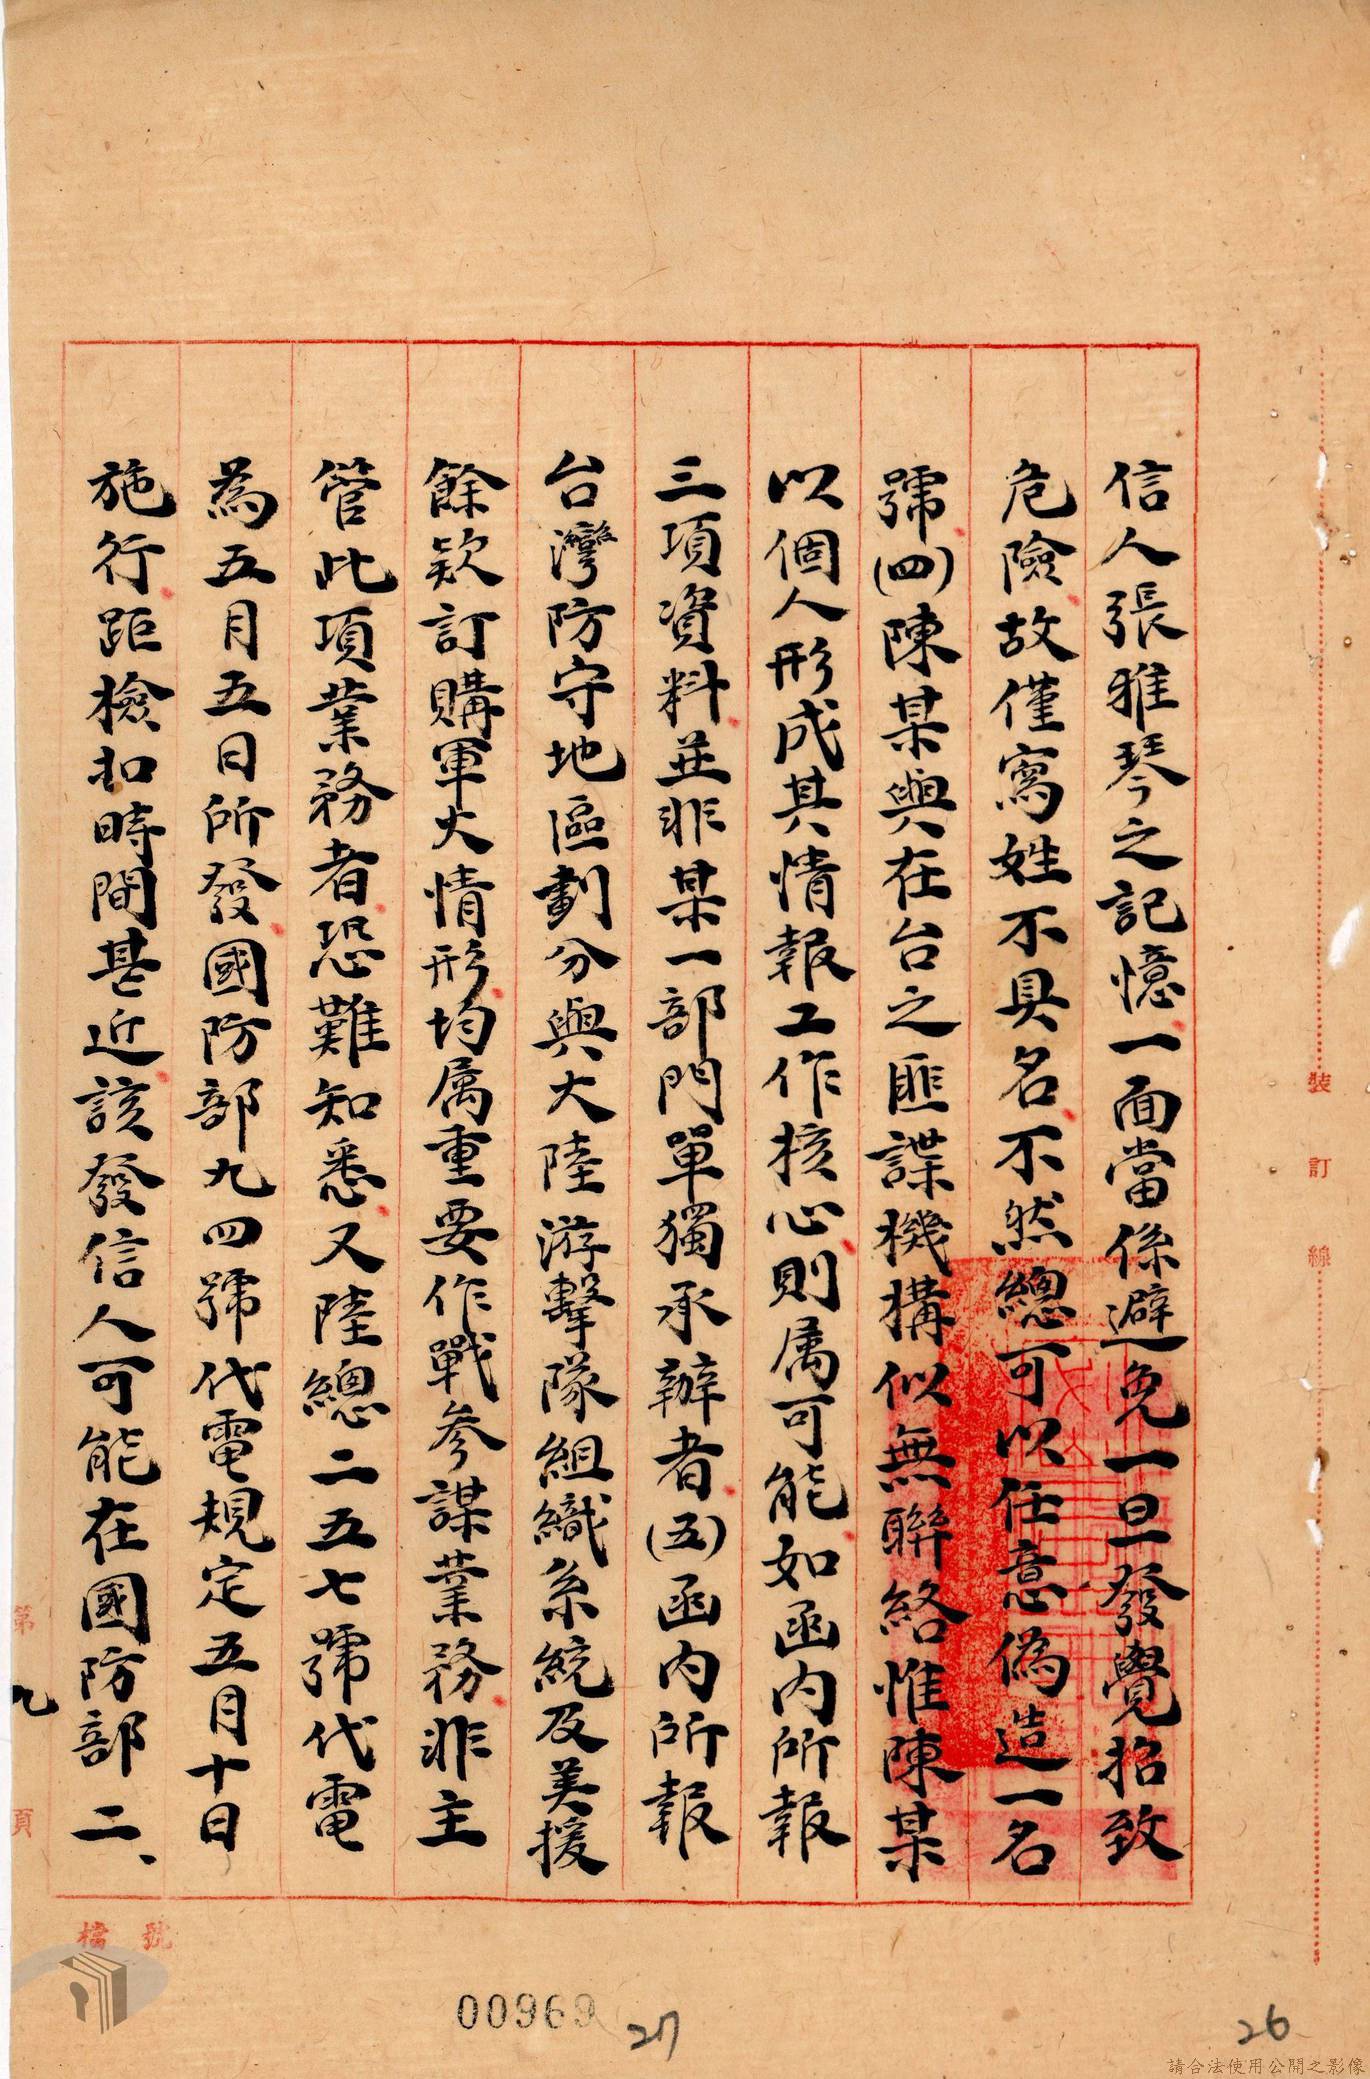 信人張雅琴之記憶一面當係避免一旦發覺招致
危險故僅寫姓不具名不然總可以任意偽造一名
號(四)陳某與在台之匪諜機構似無聯絡惟陳某
以個人形成其情報工作核心則属可能如函內所報
三項資料並非某一部門單獨承辦者(五)函內所報
台灣防守地區劃分與大陸游擊隊組織系統及美援
餘欵訂購軍火情形均属重要作戰参謀業務非主
管此項業務者恐難知悉又陸總二五七號代電
為五月五日所發國防部九四號代電規定五月十日
施行距檢扣時間甚近該發信人可能在國防部二、
裝訂線
第九頁
檔號
00969
27
26
請合法使用公開之影像